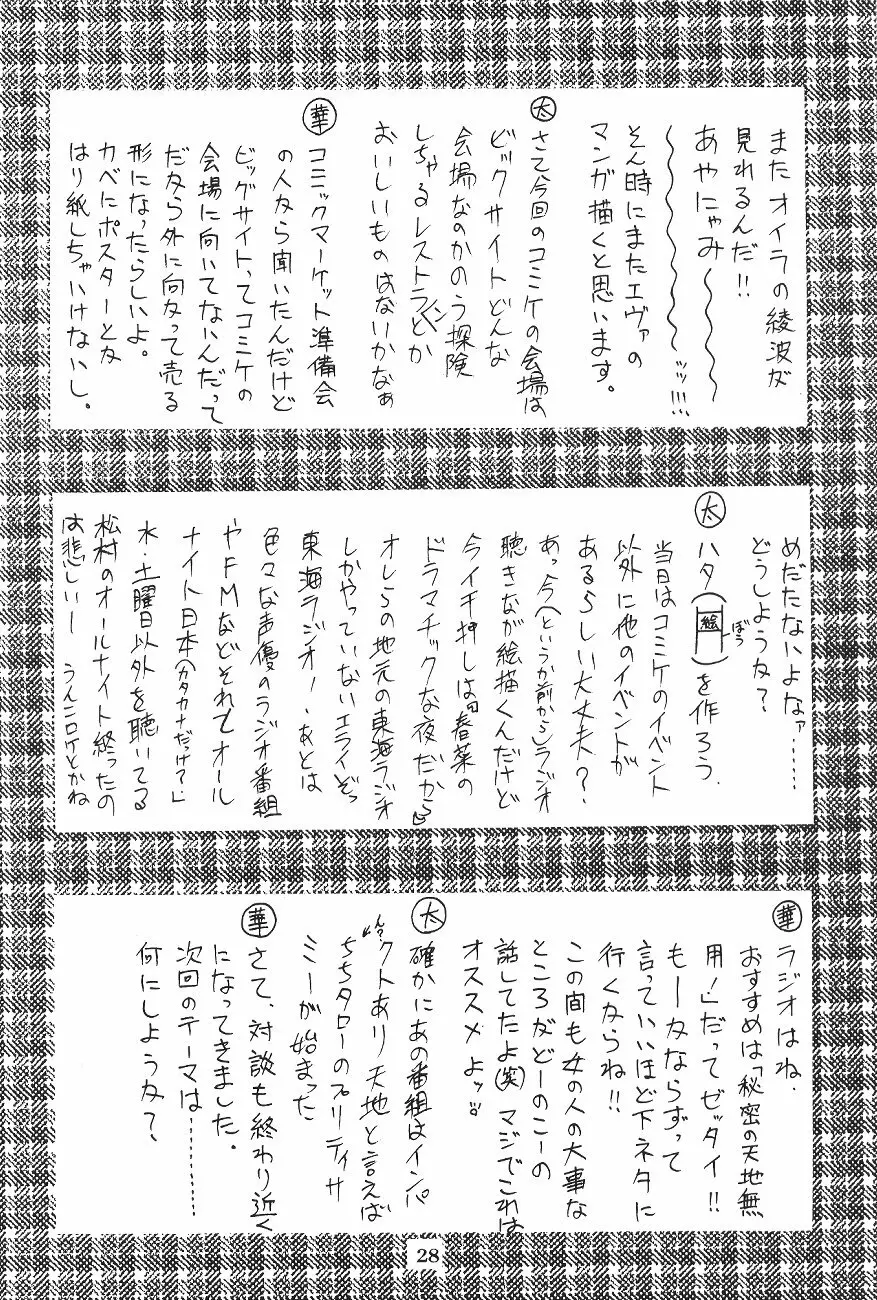 またオイラの綾波が
見れるんだ!!
あやにゃみ〜〜〜
〜〜〜〜〜〜ッッ!!!
そん時にまたエヴァの
マンガ描くと思います。
太 さて今回のコミケの会場は
ビックサイトどんな
会場なのかのう探険
しちゃるレストランとか
おいしいものはないかなぁ
華 コミックマーケット準備会
の人から聞いたんだけど
ビッグサイトってコミケの
会場に向いてないんだって
だから外に向かって売る
形になったらしいよ。
カベにポスターとか
はり紙しちゃいけないし。
めだたないよなァ……
どうしようか?
太 ハタ(絵 ぼう)を作ろう.
当日はコミケのイベント
以外に他のイベントが
あるらしい大丈夫?
あっ今(というか前から)ラジオ
聴きなが絵描くんだけど
今イチ押しは「春菜の
ドラマチックな夜だから」
オレらの地元の東海ラジオ
しかやっていないエライぞっ
東海ラジオ!、あとは
色々な声優のラジオ番組
やFMなどそれてオール
ナイト日本(カタカナだっけ?)
水・土曜日以外を聴いてる
松村のオールナイト終ったの
は悲しいー うんニロケとかね
華 ラジオはね.
おすすめは「秘密の天地無
用!」だってゼッタイ!!
もーかならずって
言っていいほど下ネタに
行くからね!!
この間も女の人の大事な
ところがどーのこーの
話してたよ(笑)マジでこれは
オススメよッ
太 確かにあの番組はインパ
クトあり天地と言えば
ちちタローのプリティサ
ミーが始まった
華 さて、対談も終わり近く
になってきました。
次回のテーマは………
何にしようか?
28